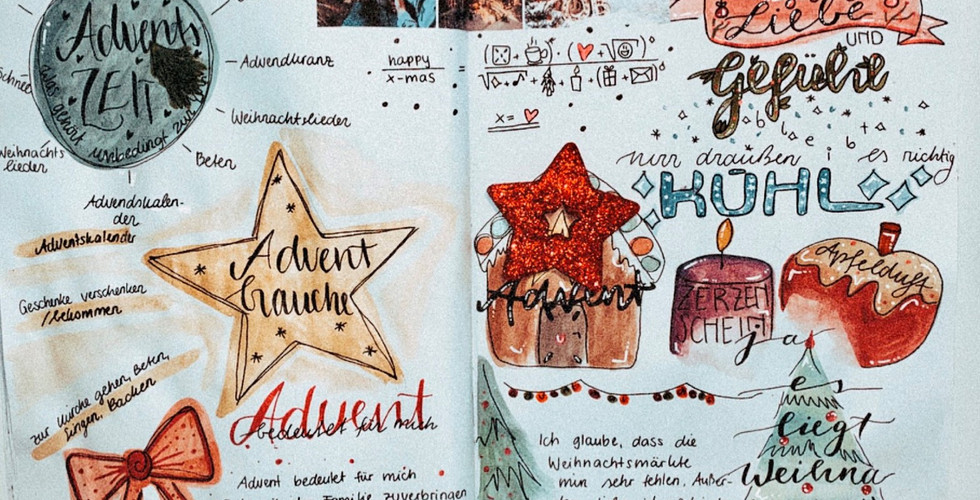 Advents
ZEIT
was gehört unbedingt zur
Schnee
Weihnachts
lieder
Adventkranz
Weihnachtslieder
Beten
Advendskalen-
der
Adventskalender
Geschenke verschenken
/bekommen
zur Kirche gehen, Beten,
Singen, Backen
Advent
bräuche
Advent
bedeutet für mich
Advent bedeutet für mich
Familie zuverbringen
happy
x-mas
=
x = ♥
Liebe
UND
Gefühl
nur draußen i es richtig
KÜHL
Advent
KERZEN
SCHEIN
Apfelduft
ja
es
liegt
Weihna
Ich glaube, dass die
Weihnachtsmärkte
mir sehr fehlen. Außer-